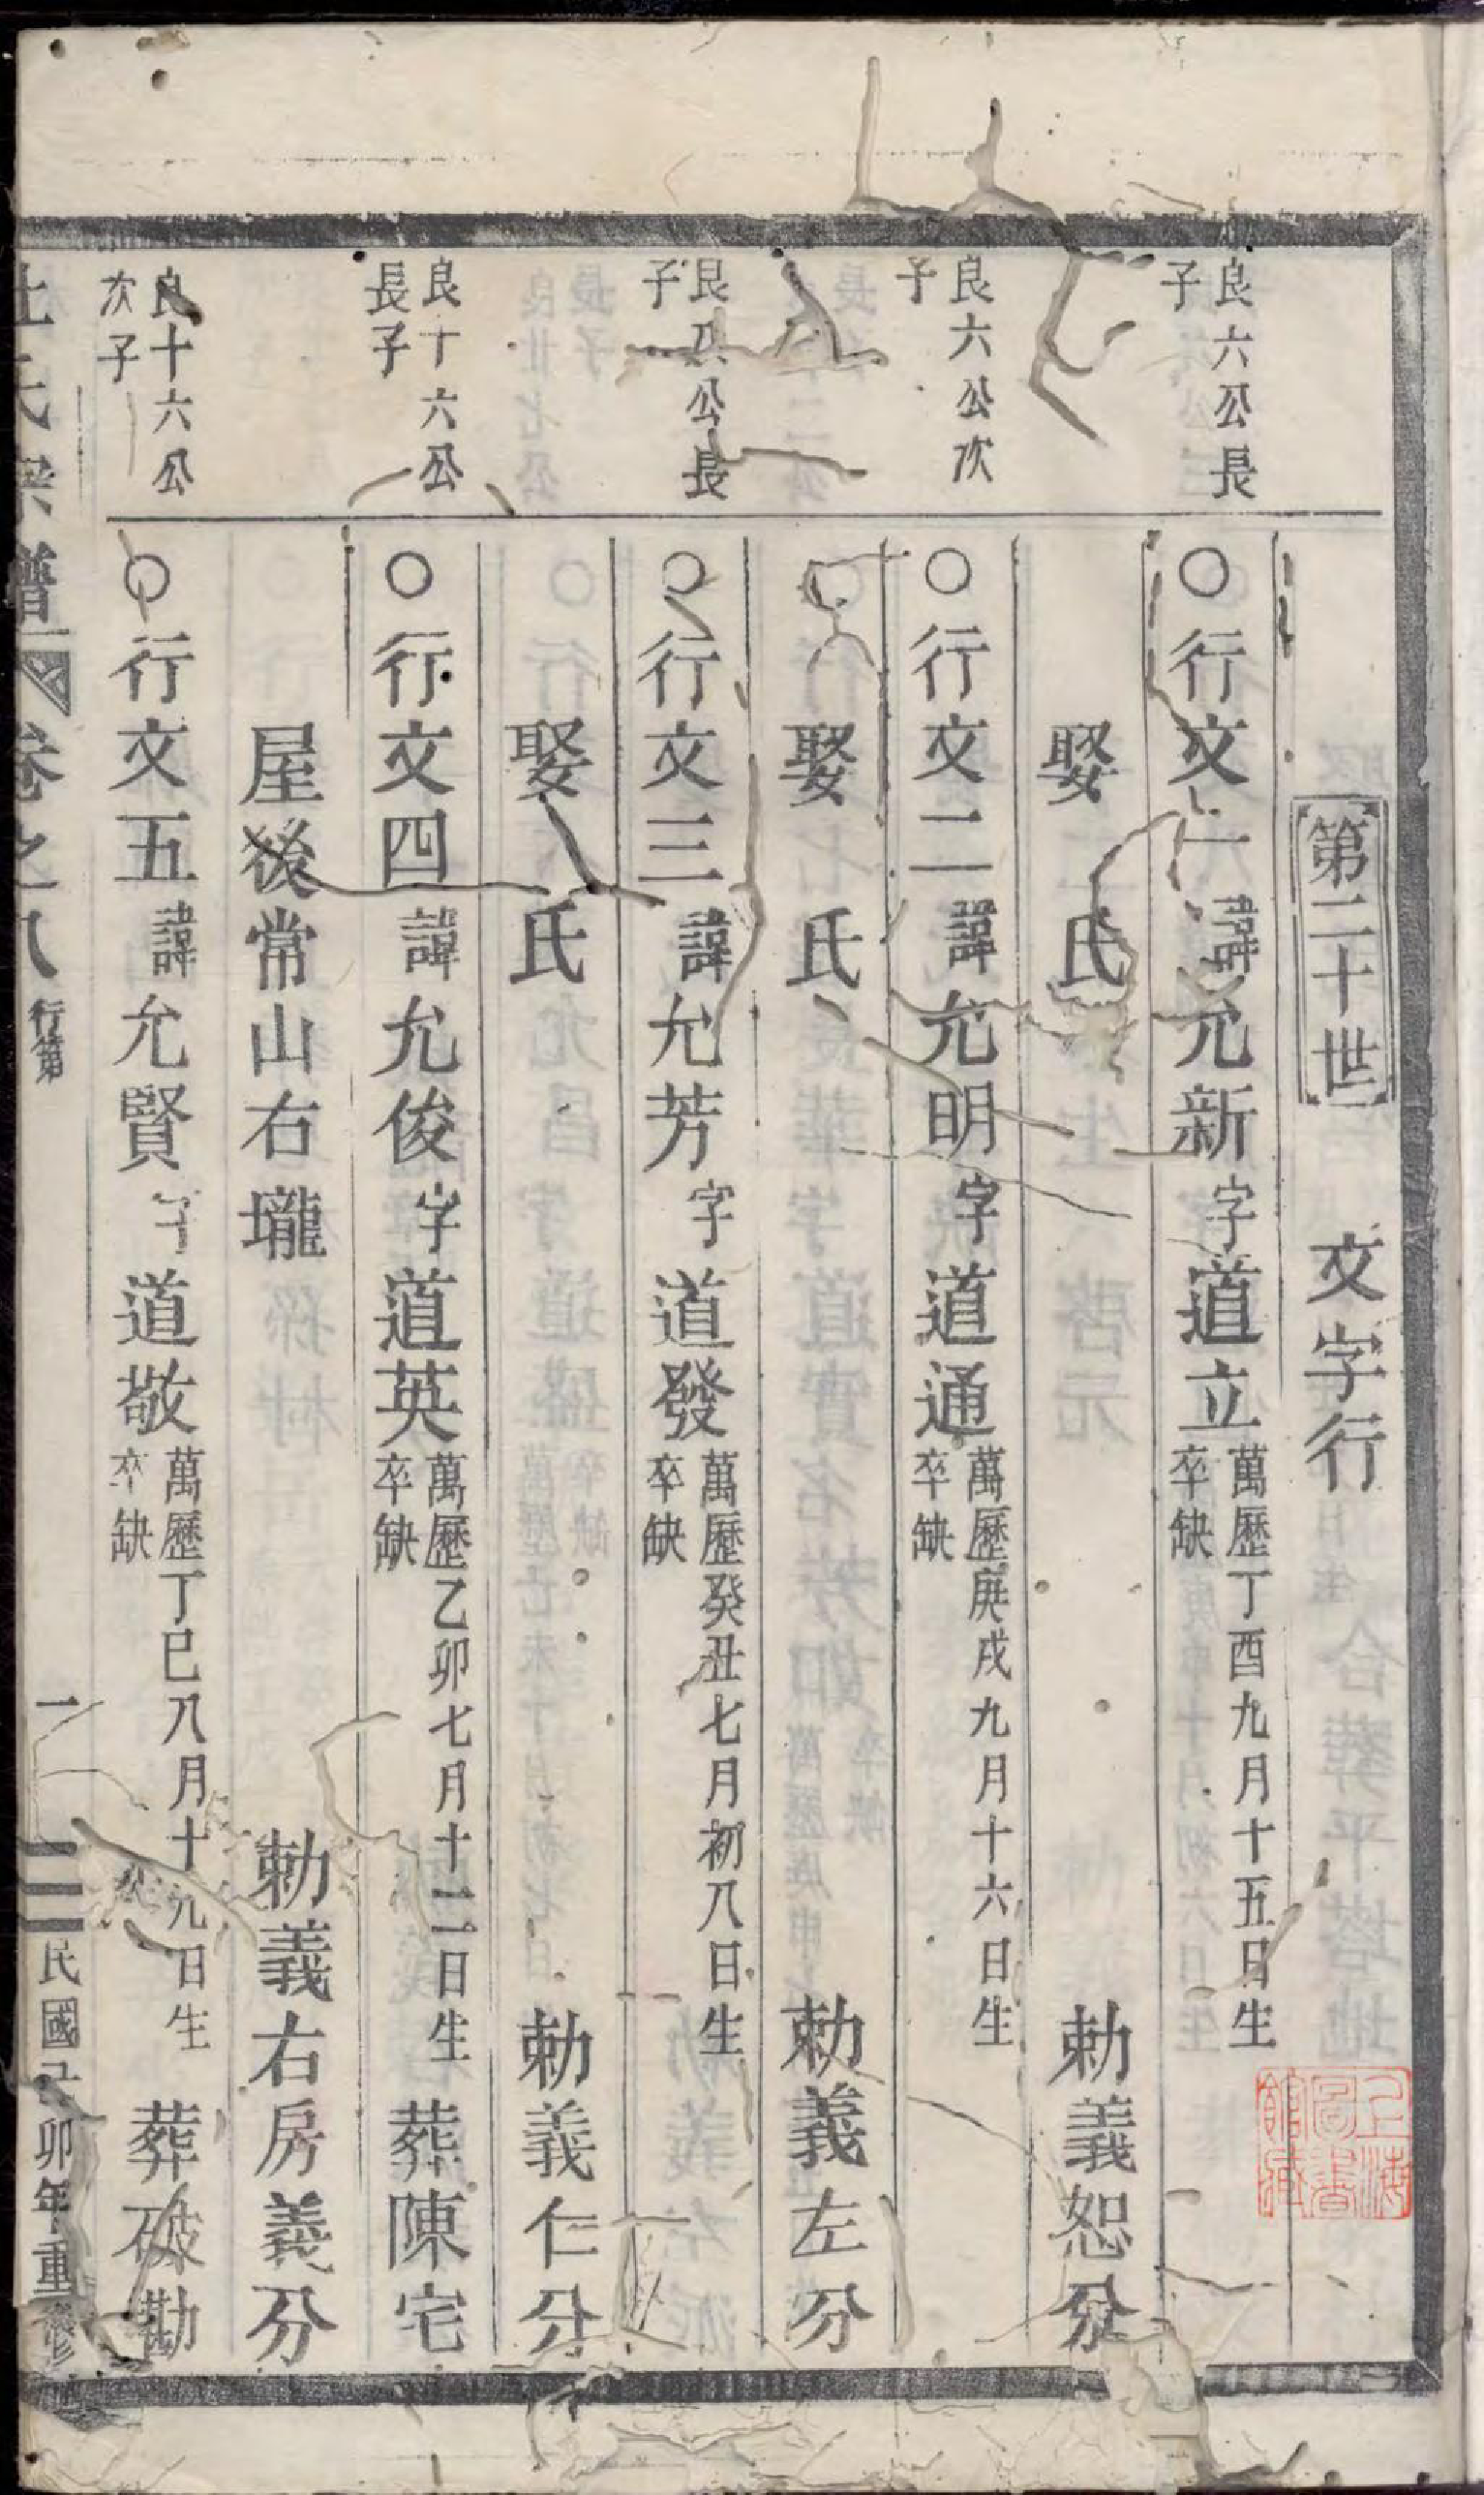 第二十世 文字行
良六公長子
○行文一諱允新字道立萬歷丁酉九月十五日生卒缺
娶 氏 勅義恕分
良六公次子
○行文二諱允明字道通萬歷庚戌九月十六日生卒缺
娶 氏 勅義左分
公長子
○行文三諱允芳字道發萬歷癸丑七月初八日生卒缺
娶 氏 勅義仁分
良十六公長子
○行文四諱允俊字道英萬歷乙卯七月十二日生卒缺 葬陳宅
屋後常山右壠 勅義右房義分
良十六公次子
○行文五諱允賢字道敬萬歷丁巳八月十九日生卒缺 葬破勘
氏宗譜 卷之八 行第 一 民國己卯年重修
上海圖書館藏